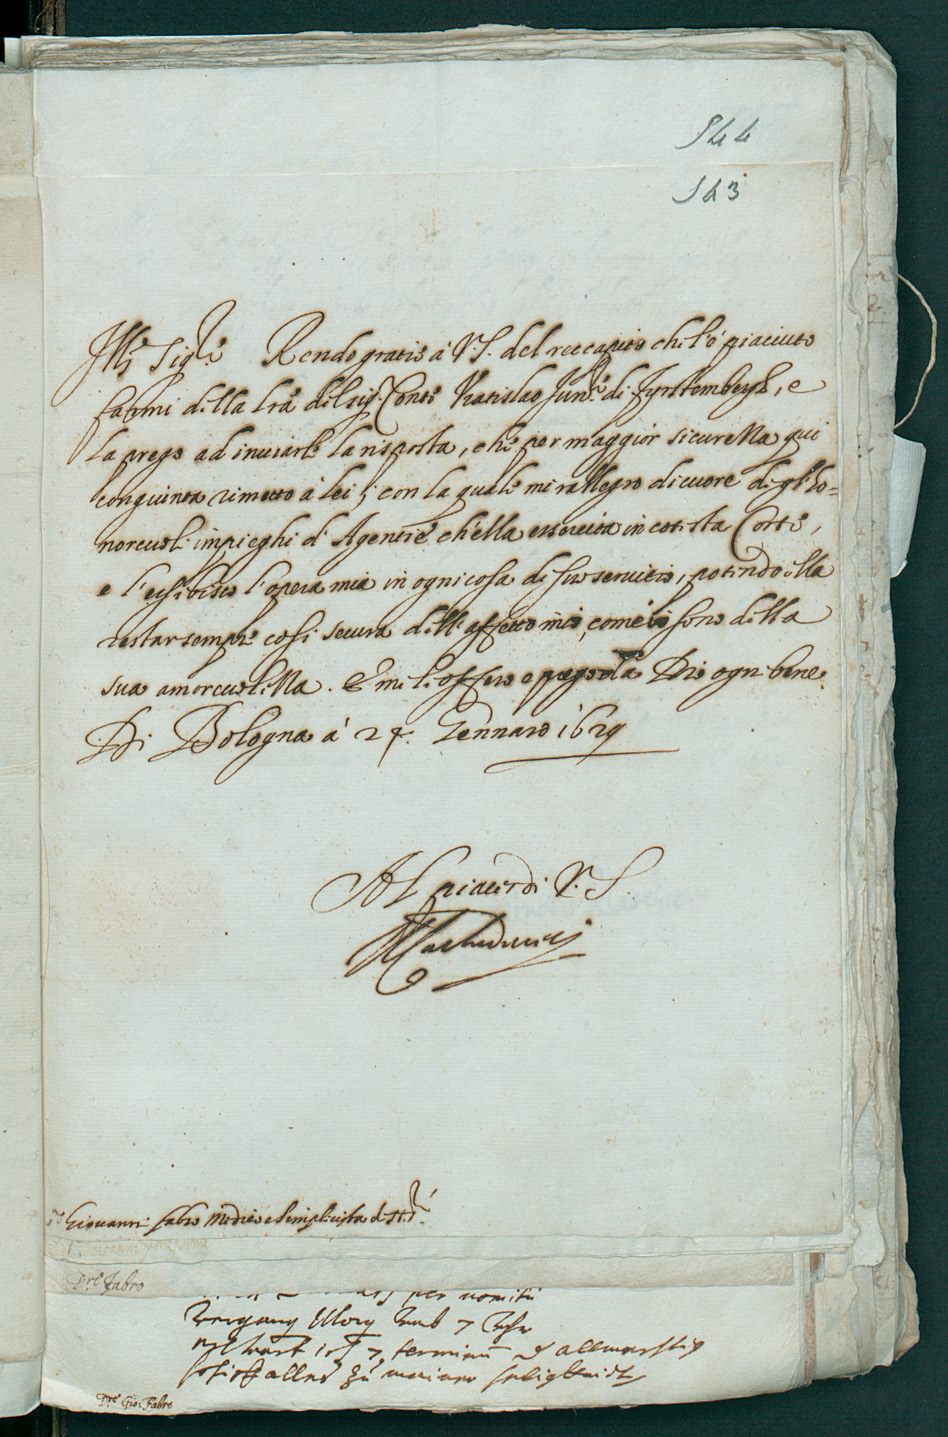 544
543
Ill.re Sig.re Rendo gratie à V.S. del reccapito che l'è piaciuto
farmi della l'ra del sig.r Conte Vratislao Jun.re di Fyrstembergh, e
la prego ad inviarle la risposta, che per maggior sicurezza qui
congiunta rimetto à lei; con la quale mi rallegro di cuore de gl'ho=
norevoli impieghi d'Agentie ch'ella essercita in cotesta Corte,
e l'essibisco l'opera mia in ogni cosa di suo servitio, potendo ella
restar sempre cosi secura dell'affetto mio, come io sono della
sua amorevolezza. E me li offero e prego da Dio ogni bene.
Di Bologna à 24. Gennaro 1629
Al piacer di V.S.
Giovanni fabro Medico e Semplicista di S.
D.re Fabro
per
termin
D.re Gio: Fabro